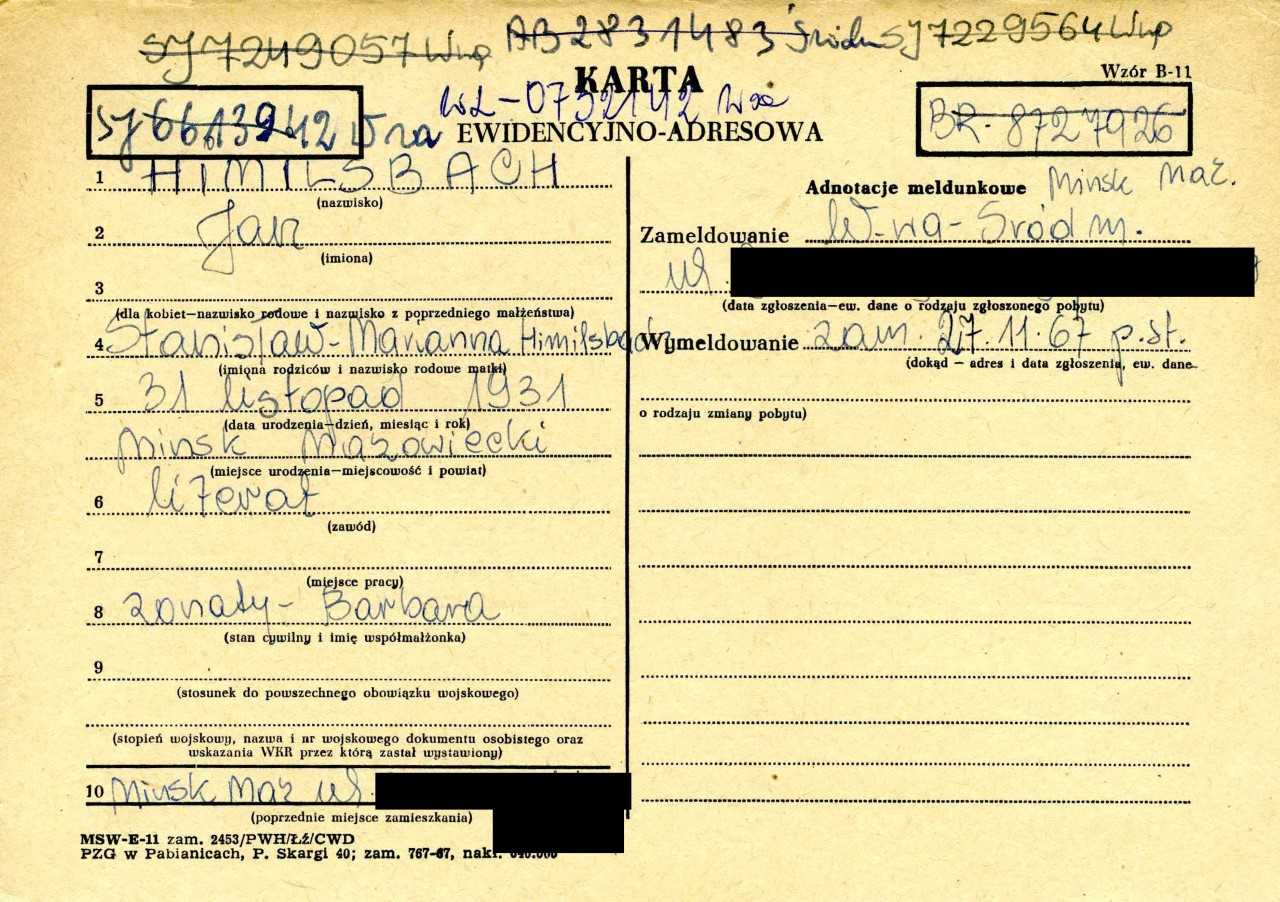 SJ 7249057 Wwa AB 2831483 Śródm SJ 7229564 Wwa
KARTA
Wzór B-11
SJ 6613942 W-wa WŁ-0732142 Wwa BR. 8727926
EWIDENCYJNO-ADRESOWA
1 HIMILSBACH
(nazwisko)
2 Jan
(imiona)
3
(dla kobiet—nazwisko rodowe i nazwisko z poprzedniego małżeństwa)
4 Stanisław-Marianna Himilsbach
(imiona rodziców i nazwisko rodowe matki)
5 31 listopad 1931
(data urodzenia—dzień, miesiąc i rok)
Minsk Mazowiecki
(miejsce urodzenia—miejscowość i powiat)
6 literat
(zawód)
7
(miejsce pracy)
8 żonaty- Barbara
(stan cywilny i imię współmałżonka)
9
(stosunek do powszechnego obowiązku wojskowego)
(stopień wojskowy, nazwa i nr wojskowego dokumentu osobistego oraz
wskazania WKR przez którą zastał wystawiony)
10 Minsk Maz ul.
(poprzednie miejsce zamieszkania)
MSW-E-11 zam. 2453/PWH/ŁŹ/CWD
PZG w Pabianicach, P. Skargi 40; zam. 767-67, nakł.
Adnotacje meldunkowe Minsk Maz.
Zameldowanie W-wa-Śródm.
ul.
(data zgłoszenia—ew. dane o rodzaju zgłoszonego pobytu)
Wymeldowanie zam. 27.11.67 p.st.
(dokąd — adres i data zgłoszenia, ew. dane
o rodzaju zmiany pobytu)